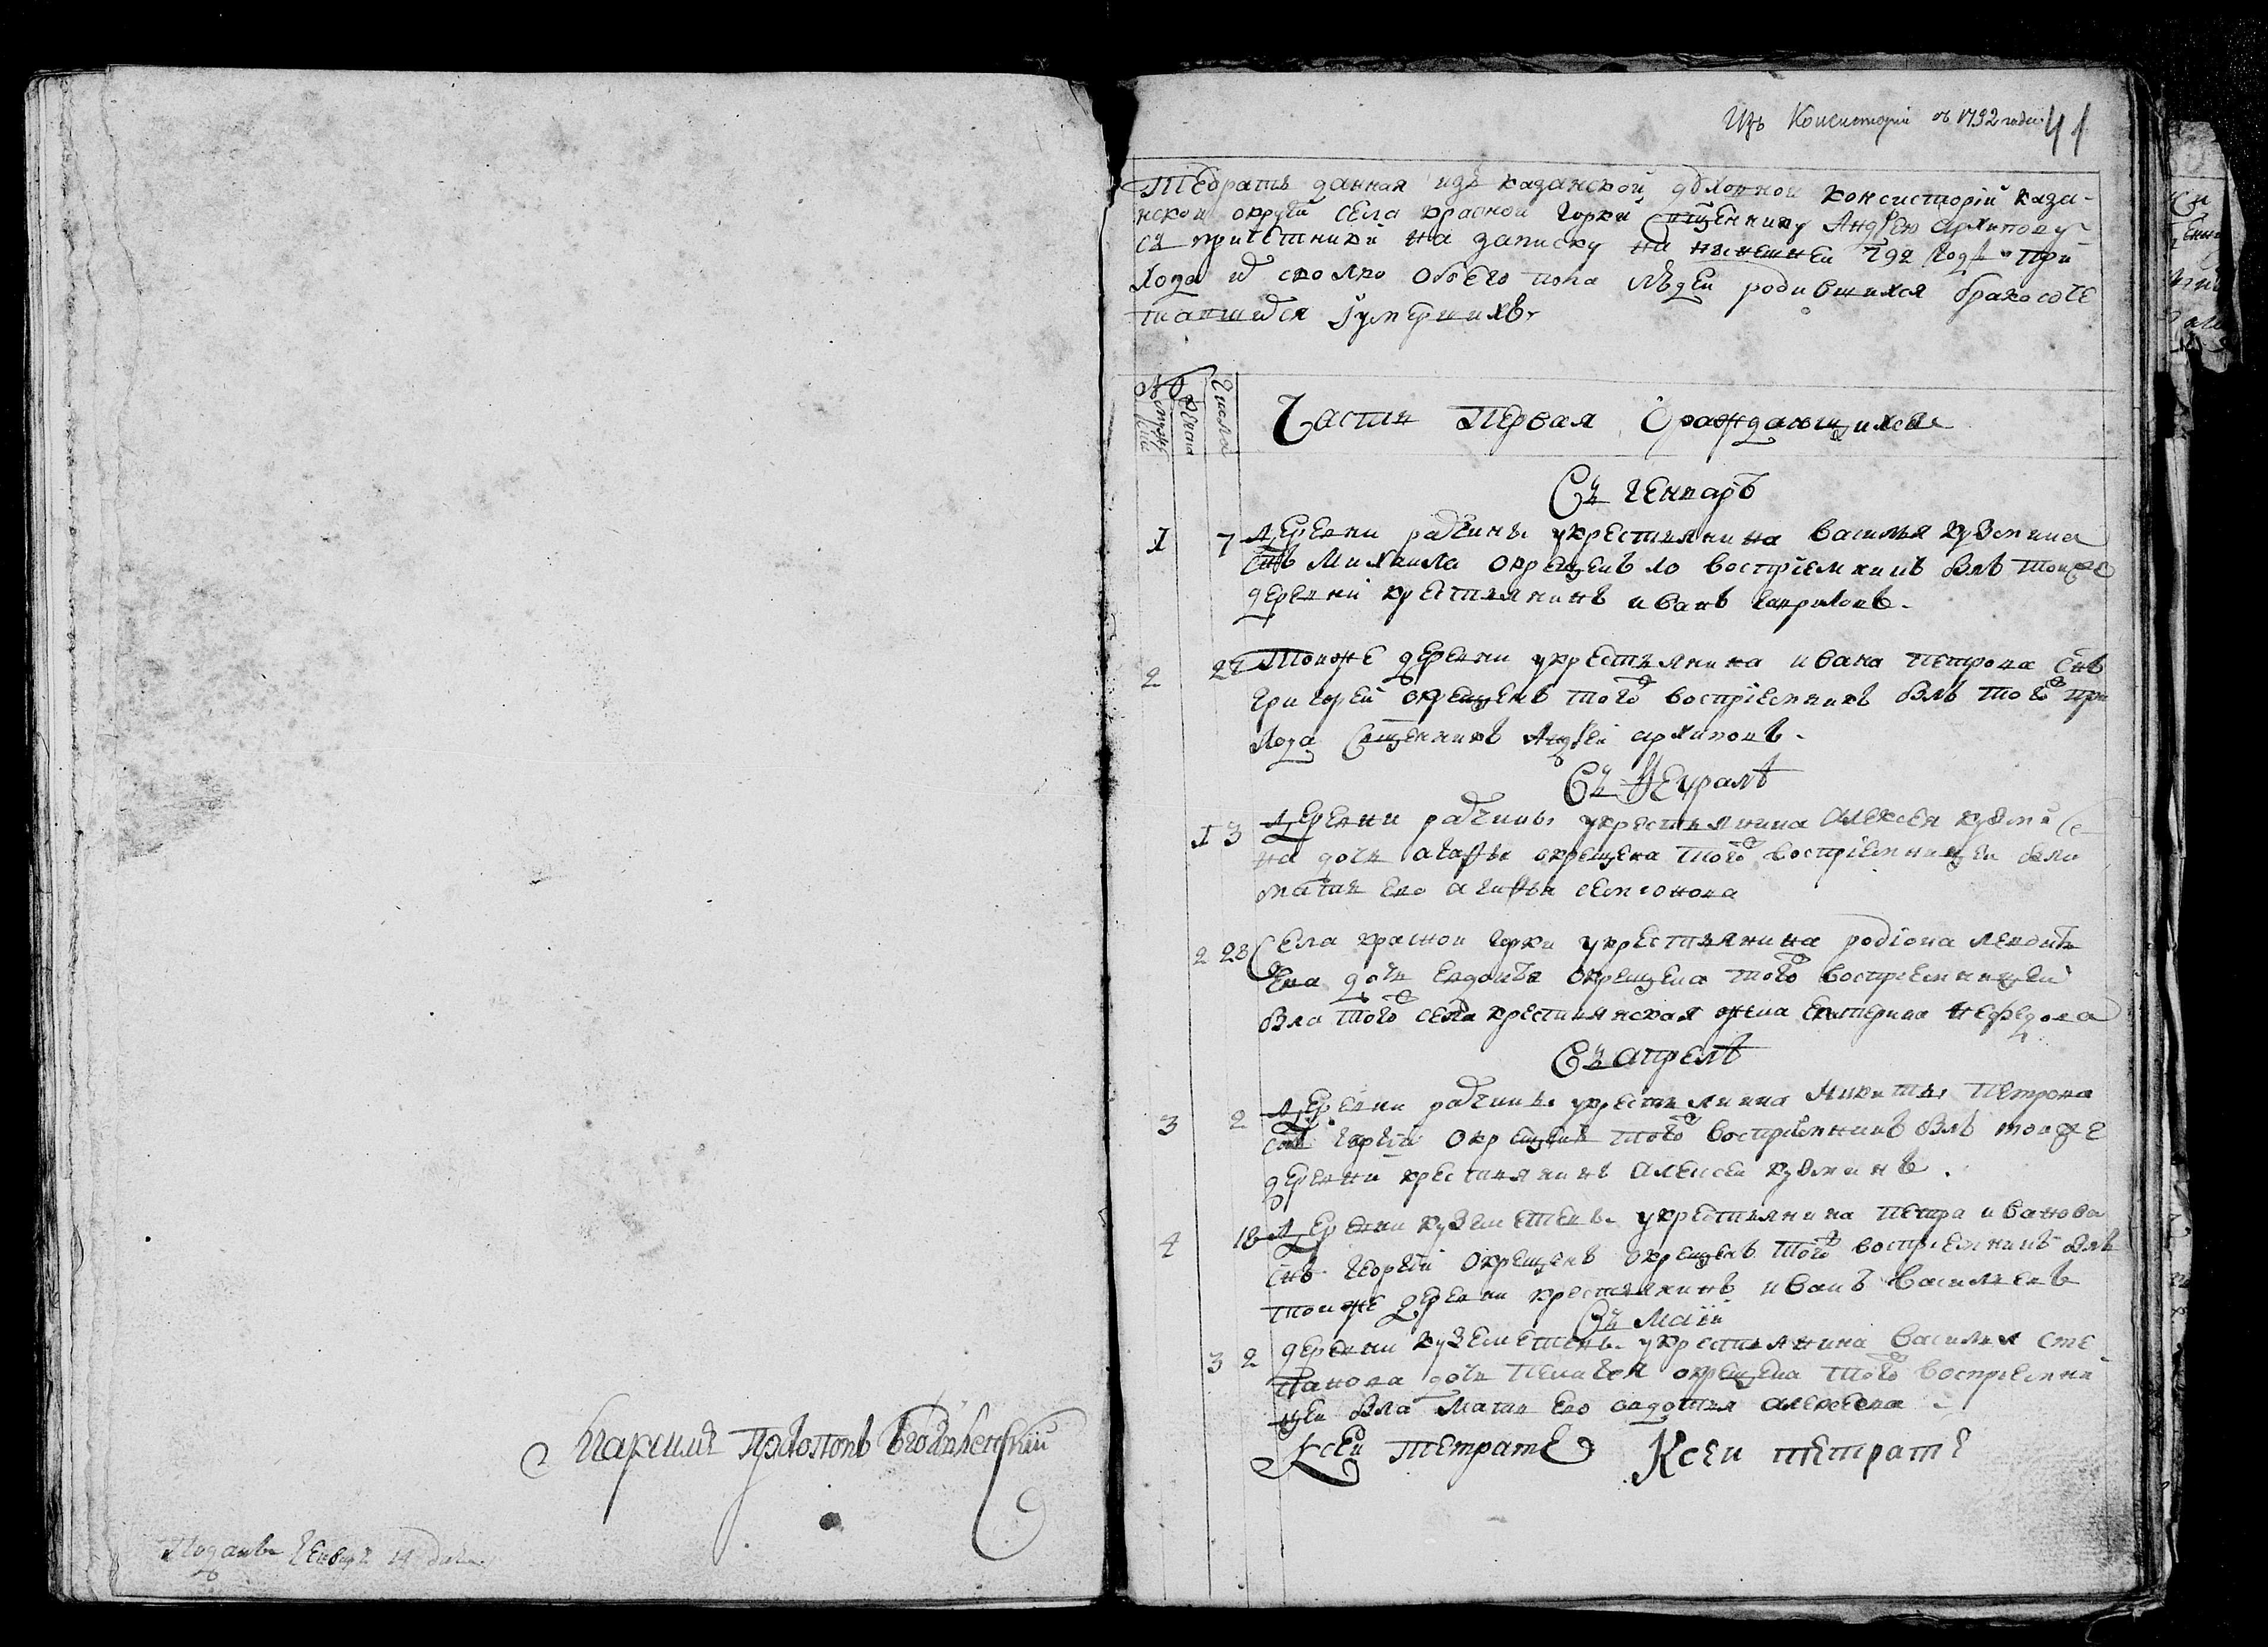 Подана генвар 14 дня
Изъ Консистории въ 1792 годе 41
Тетрать данная изъ казанской духовной консисторїи каза-
нской округи села красной горки Сщеннику Андрею Архипову
съ причетники на записку на нынешней 792 годъ При
хода и сколко обоего пола людеи родившихся бракосоче
тавшихся Iумершихъ
Числа
Часть Первая Ораждающихся
Съ генварь
1 7 Деревни ратчины укрестьянина Василья кузмина
снъ Михаила окрещенъ 10 восприемникъ былъ тоиже
деревни крестьянинъ иванъ гавриловъ
2 27 Тоиже деревни укрестьянина ивана петрова снъ
григореи окрещенъ того восприемникъ былъ того при
хода Сщенникъ Андреи архиповъ
Съ Февралъ
1 3 Деревни ратчины укрестьянина Алексея кузми
на дочь агафья окрещена того восприемницеи была
мать ево агафья семионова
2 28 Села красной горки укрестьянина родиона леонть
ева дочь евдокия окрещена того восприемницеи
была того села крестьянская жена екатерина нефедова
Съ апрелъ
3 2 Деревни ратчины укрестьянина Никиты Петрова
снъ окрещенъ того восприемникъ былъ тоиже
деревни крестьянинъ Алексеи кузминъ
4 18 Деревни куземетевы укрестьянина петра иванова
снъ георгии окрещенъ окрещенъ того восприемникъ былъ
тоиже деревни крестьянинъ иванъ Васильевъ
Съ Маїи
3 2 деревни куземетевы укрестьянина Василия сте
панова дочь пелагея окрещена того восприемни
цеи была мать ево авдотья алексеева
Ксеи тетрате Ксеи тетрате